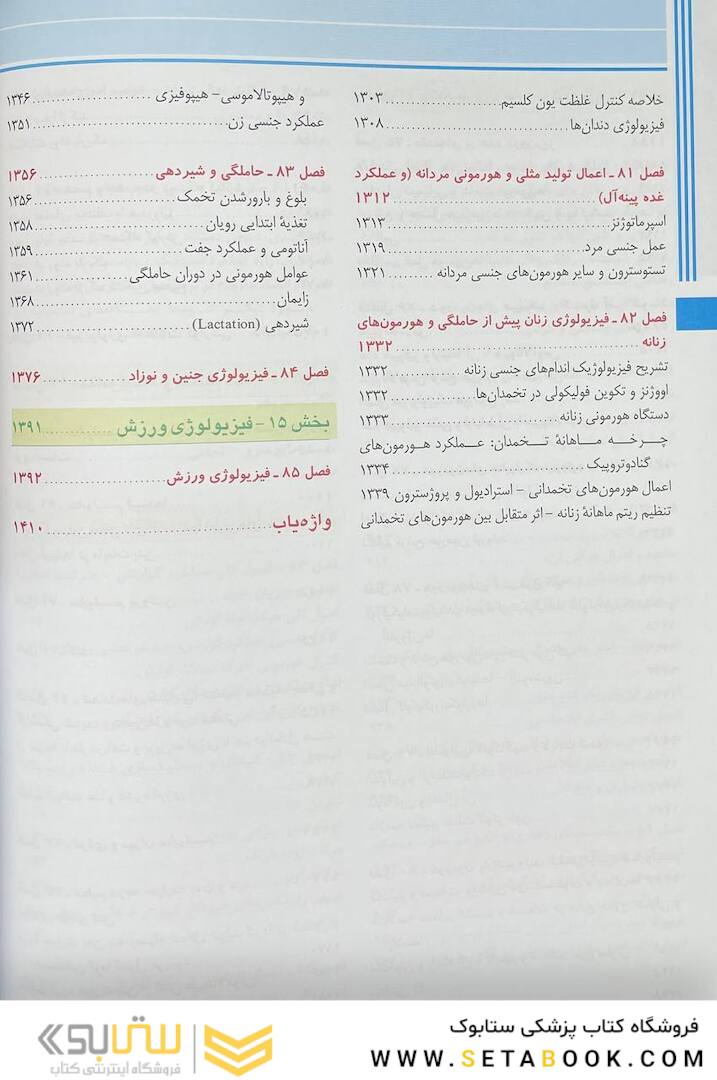 خلاصه کنترل غلظت یون کلسیم..................۱۳۰۳
فیزیولوژی دندان‌ها..................۱۳۰۸
فصل ۸۱ ـ اعمال تولید مثلی و هورمونی مردانه (و عملکرد
غده پینه‌آل)..................۱۳۱۲
اسپرماتوژنز..................۱۳۱۳
عمل جنسی مرد..................۱۳۱۹
تستوسترون و سایر هورمون‌های جنسی مردانه..........۱۳۲۱
فصل ۸۲ ـ فیزیولوژی زنان پیش از حاملگی و هورمون‌های
زنانه..................۱۳۳۲
تشریح فیزیولوژیک اندام‌های جنسی زنانه............۱۳۳۲
اووژنز و تکوین فولیکولی در تخمدان‌ها............۱۳۳۲
دستگاه هورمونی زنانه..................۱۳۳۳
چـرخـه ماهـانـهٔ تـخـمدان: عـملکرد هـورمون‌های
گنادوتروپیک..................۱۳۳۴
اعمال هورمون‌های تخمدانی - استرادیول و پروژسترون ۱۳۳۹
تنظیم ریتم ماهانهٔ زنانه - اثر متقابل بین هورمون‌های تخمدانی
و هیپوتالاموسی- هیپوفیزی..................۱۳۴۶
عملکرد جنسی زن..................۱۳۵۱
فصل ۸۳ ـ حاملگی و شیردهی..................۱۳۵۶
بلوغ و بارورشدن تخمک..................۱۳۵۶
تغذیهٔ ابتدایی رویان..................۱۳۵۸
آناتومی و عملکرد جفت..................۱۳۵۹
عوامل هورمونی در دوران حاملگی..................۱۳۶۱
زایمان..................۱۳۶۸
شیردهی (Lactation)..................۱۳۷۲
فصل ۸۴ ـ فیزیولوژی جنین و نوزاد............۱۳۷۶
بخش ۱۵ - فیزیولوژی ورزش............۱۳۹۱
فصل ۸۵ ـ فیزیولوژی ورزش..................۱۳۹۲
واژه‌یاب..................۱۴۱۰
فروشگاه کتاب پزشکی ستابوک
WWW.SETABOOK.COM
ستابوک
فروشگاه اینترنتی کتاب